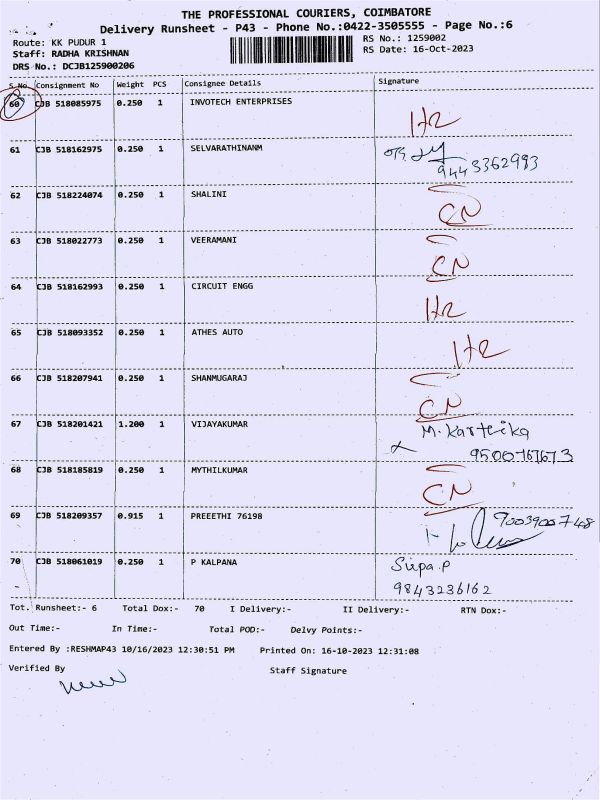 THE PROFESSIONAL COURIERS, COIMBATORE
Delivery Runsheet - P43 - Phone No.:0422-3505555 - Page No.:6
Route: KK PUDUR 1 RS No.: 1259002
Staff: RADHA KRISHNAN RS Date: 16-Oct-2023
DRS No.: DCJB125900206
S.No. Consignment No Weight PCS Consignee Details Signature
60 CJB 518085975 0.250 1 INVOTECH ENTERPRISES
61 CJB 518162975 0.250 1 SELVARATHINANM
9443362993
62 CJB 518224074 0.250 1 SHALINI CN
63 CJB 518022773 0.250 1 VEERAMANI CN
64 CJB 518162993 0.250 1 CIRCUIT ENGG
65 CJB 518093352 0.250 1 ATHES AUTO
66 CJB 518207941 0.250 1 SHANMUGARAJ CN
67 CJB 518201421 1.200 1 VIJAYAKUMAR M. Karthika
68 CJB 518185819 0.250 1 MYTHILKUMAR CN
69 CJB 518209357 0.915 1 PREEETHI 76198
70 CJB 518061019 0.250 1 P KALPANA
9843236162
Tot. Runsheet:- 6 Total Dox:- 70 I Delivery:- II Delivery:- RTN Dox:-
Out Time:- In Time:- Total POD:- Delvy Points:-
Entered By :RESHMAP43 10/16/2023 12:30:51 PM Printed On: 16-10-2023 12:31:08
Verified By Staff Signature